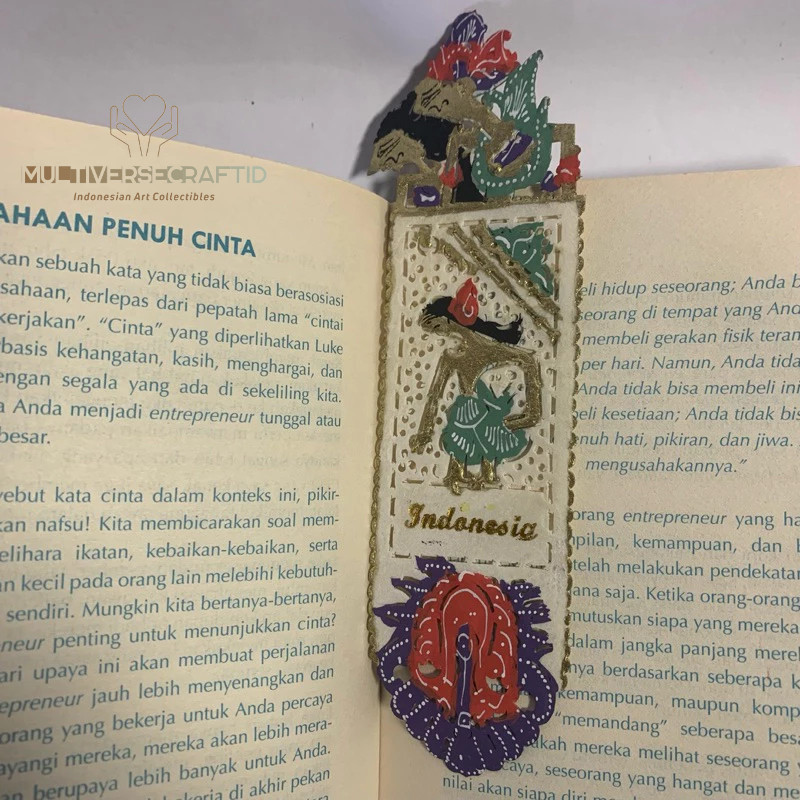 MULTIVERSECRAFTID
Indonesian Art Collectibles
AHAAN PENUH CINTA
kan sebuah kata yang tidak biasa berasosiasi
sahaan, terlepas dari pepatah lama “cintai
kerjakan”. “Cinta” yang diperlihatkan Luke
basis kehangatan, kasih, menghargai, dan
engan segala yang ada di sekeliling kita.
a Anda menjadi entrepreneur tunggal atau
besar.
yebut kata cinta dalam konteks ini, pikir-
kan nafsu! Kita membicarakan soal mem-
elihara ikatan, kebaikan-kebaikan, serta
an kecil pada orang lain melebihi kebutuh-
sendiri. Mungkin kita bertanya-bertanya,
neur penting untuk menunjukkan cinta?
ari upaya ini akan membuat perjalanan
epreneur jauh lebih menyenangkan dan
orang yang bekerja untuk Anda percaya
ayangi mereka, mereka akan lebih mera-
an berupaya lebih banyak untuk Anda.
bekerja di akhir pekan
Indonesia
eli hidup seseorang; Anda b
seorang di tempat yang And
membeli gerakan fisik teram
per hari. Namun, Anda tida
Anda tidak bisa membeli ini
eli kesetiaan; Anda tidak bis
nuh hati, pikiran, dan jiwa.
mengusahakannya.”
orang entrepreneur yang ha
mpilan, kemampuan, dan b
telah melakukan pendekatan
ana saja. Ketika orang-orang
mutuskan siapa yang mereka
dalam jangka panjang merek
nya berdasarkan seberapa k
kemampuan, maupun komp
“memandang” seberapa besa
kah mereka melihat seseorang y
caya, seseorang yang hangat dan me
nilai akan siapa diri